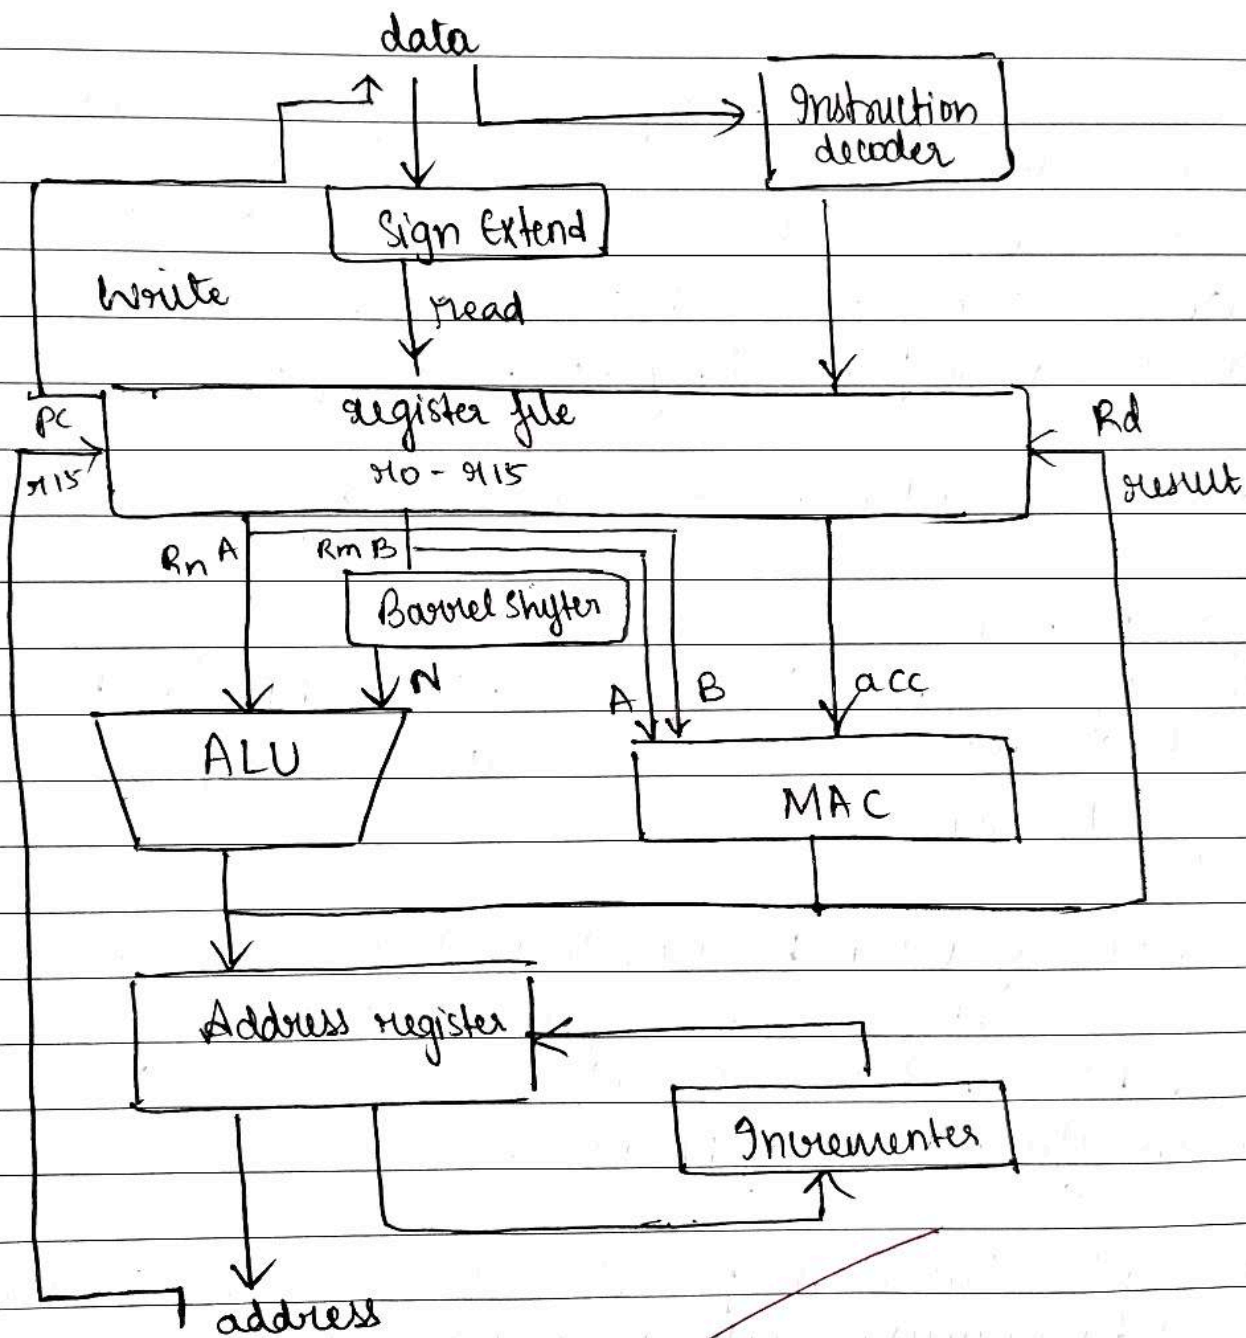 data
Instruction
decoder
Sign Extend
Write
read
PC
register file
Rd
r15
r0 - r15
result
Rn A
Rm B
Barrel Shifter
N
A
B
acc
ALU
MAC
Address register
Incrementer
address